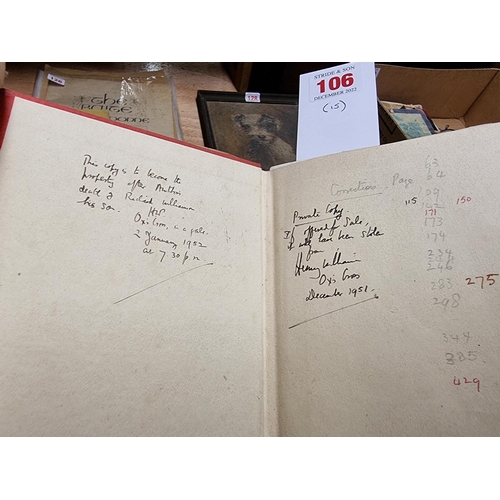 178
178
STRIDE & SON
106
DECEMBER 2023
(15)
This copy is to become the
property after Author's
death of Richard Williamson
his son. HW.
Ox's Cross, in a gale.
2 January 1952
at 7.30 p.m
Corrections. Page
Private Copy
If offered for Sale,
it will have been stolen
from
Henry Williamson
Ox's Cross
December 1951.
63
64
109
115
142
150
171
173
174
234
246
283
275
298
344
385
429